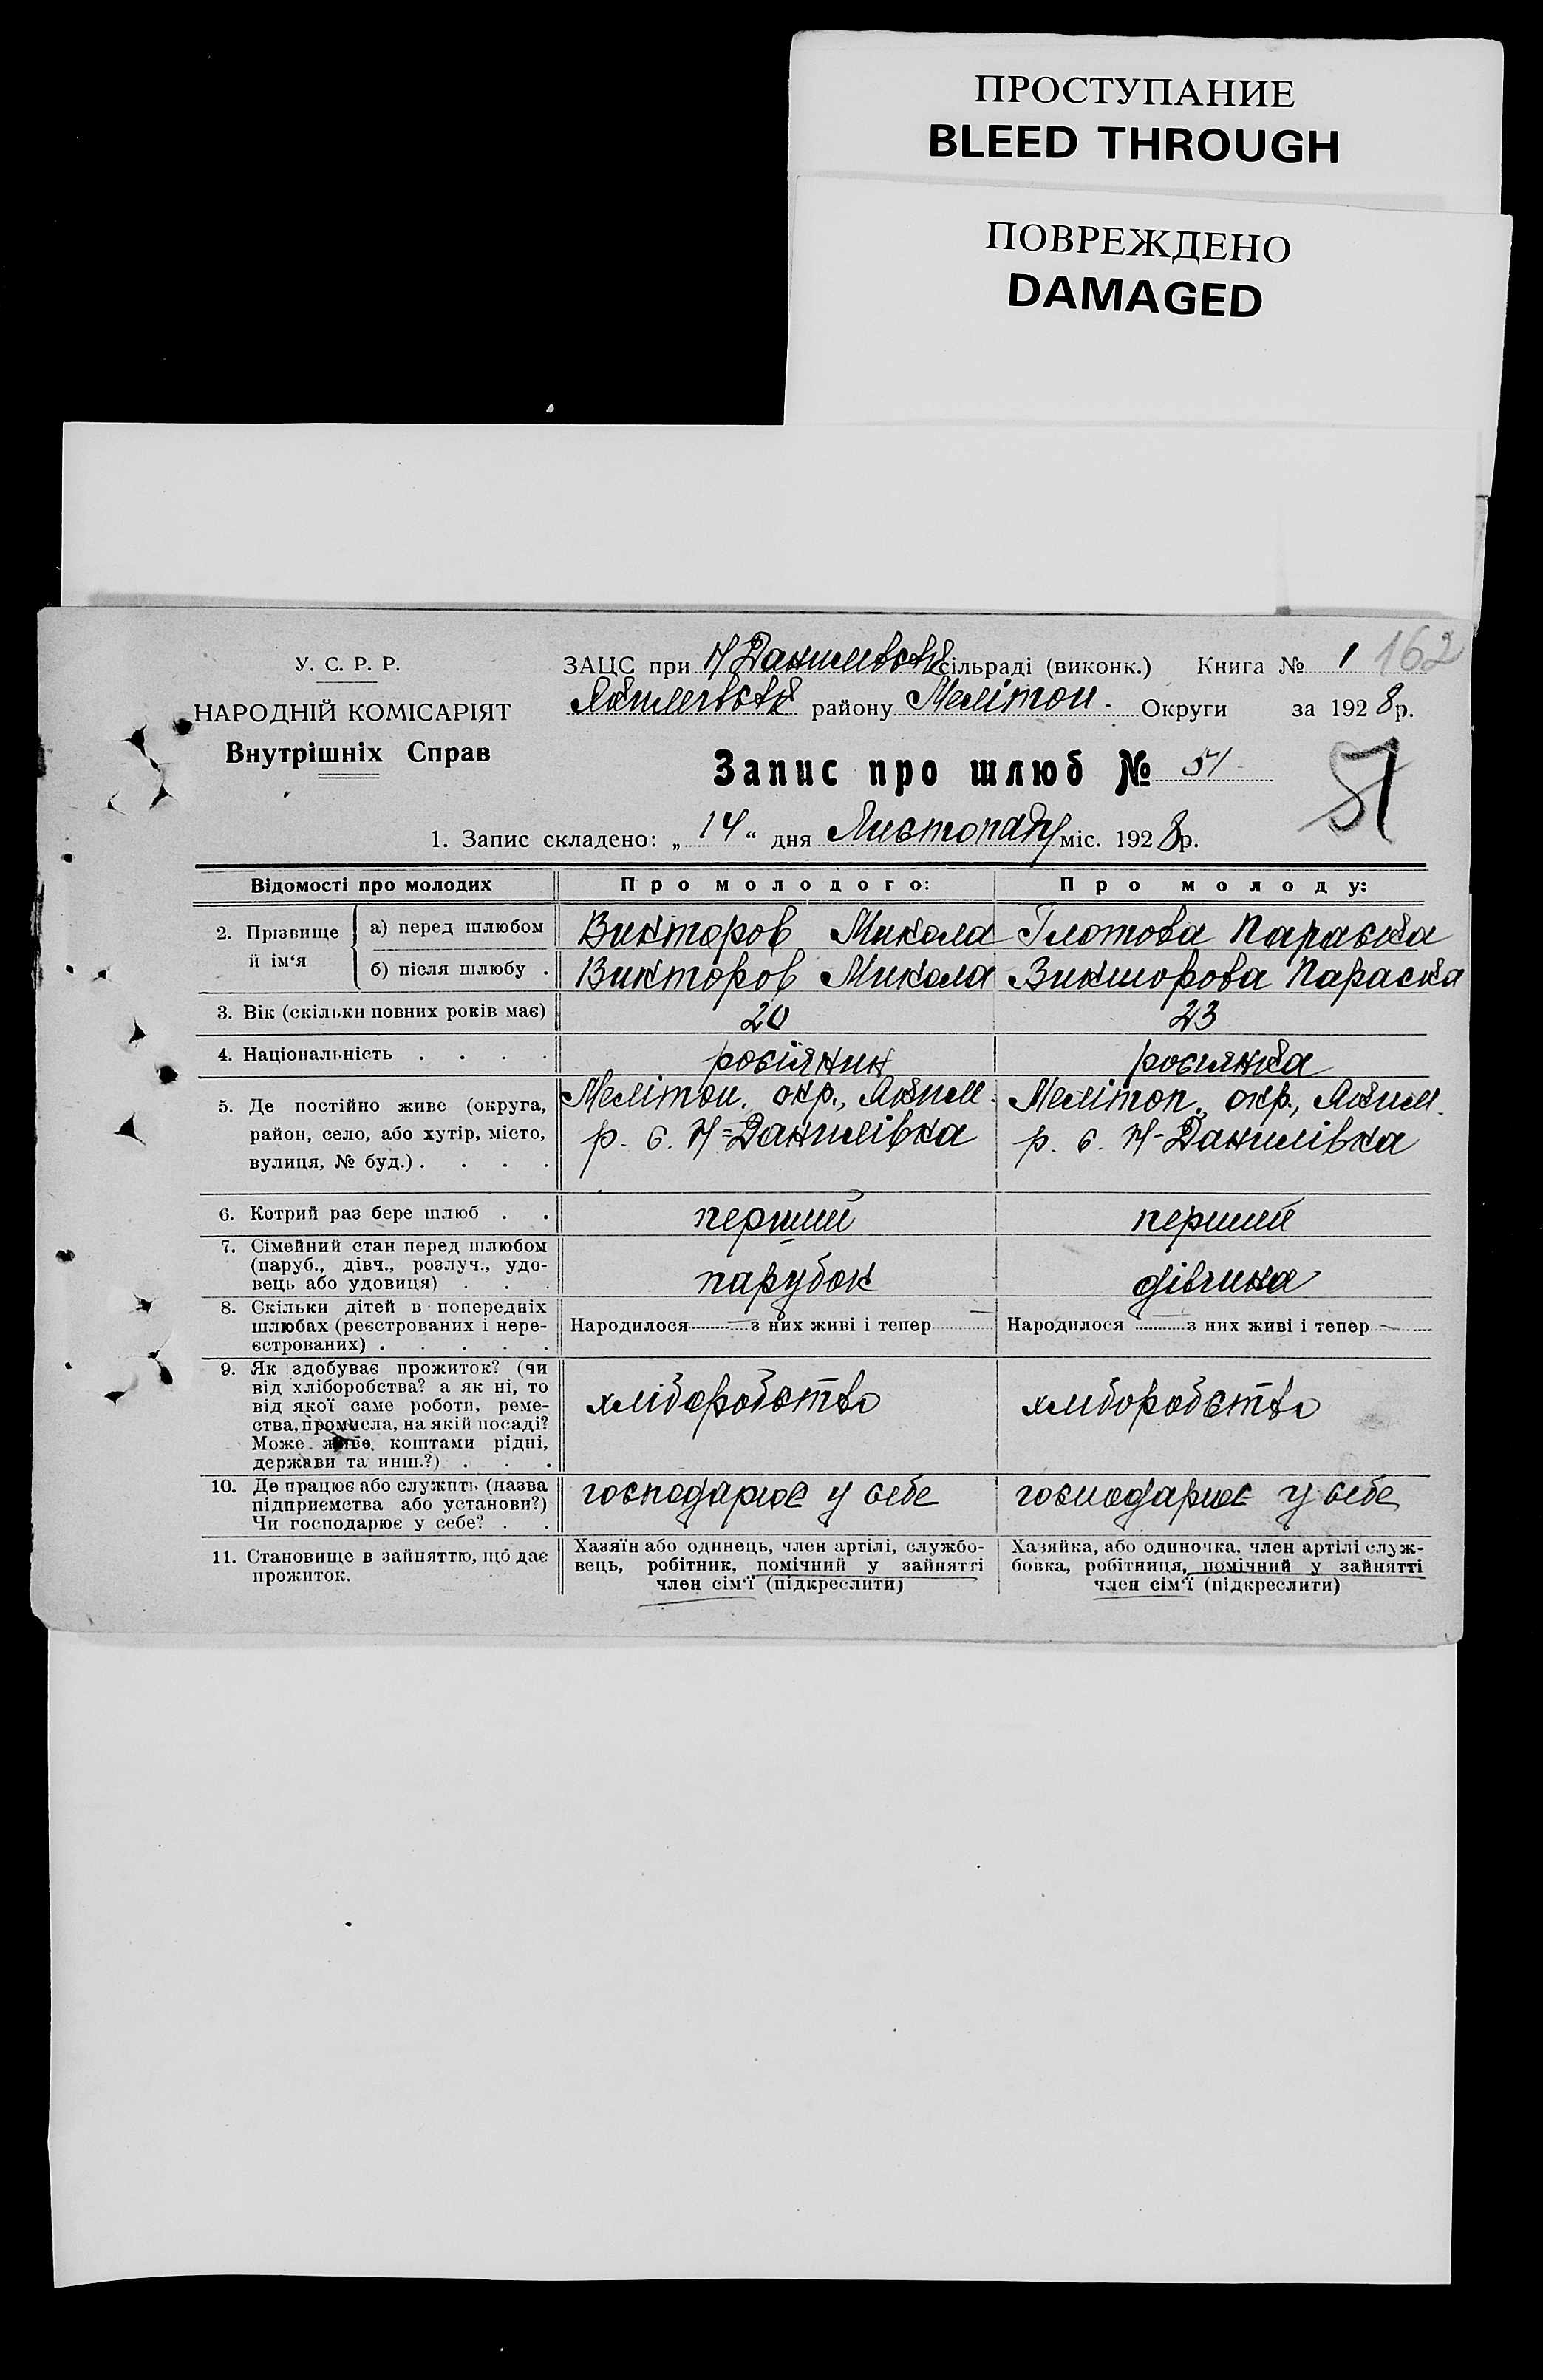 ПРОСТУПАНИЕ
BLEED THROUGH
ПОВРЕЖДЕНО
DAMAGED
162
У. С. Р. Р.
НАРОДНІЙ КОМІСАРІЯТ
Внутрішніх Справ
ЗАЦС при Н Данилевськ сільраді (виконк.) Книга № 1
Якимевськ району Мелітоп. Округи за 1928 р.
Запис про шлюб № 51
51
1. Запис складено: „14“ дня Листопаду міс. 1928 р.
Відомості про молодих Про молодого: Про молоду:
2. Прізвище й ім‘я а) перед шлюбом Викторов Микола Глотова Параска
б) після шлюбу . Викторов Микола Викторова Параска
3. Вік (скільки повних років має) 20 23
4. Національність . . . . росіянин росиянка
5. Де постійно живе (округа, Мелітоп. окр., Аким. Мелітоп., окр., Аким.
район, село, або хутір, місто, р. с. Н-Данилівка р. с. Н-Данилівка
вулиця, № буд.) . . . .
6. Котрий раз бере шлюб . . перший перший
7. Сімейний стан перед шлюбом
(паруб., дівч., розлуч., удо-
вець або удовиця) . . . парубок дівчина
8. Скільки дітей в попередніх
шлюбах (реєстрованих і нере- Народилося — з них живі і тепер — Народилося — з них живі і тепер —
єстрованих) . . . . .
9. Як здобуває прожиток? (чи
від хліборобства? а як ні, то
від якої саме роботи, реме- хліборобство хлиборобство
ства, промисла, на якій посаді?
Може живе коштами рідні,
держави та инш.?) . . .
10. Де працює або служить (назва господарює у себе господарює у себе
підприємства або установи?)
Чи господарює у себе? . .
11. Становище в зайняттю, що дає Хазяїн або одинець, член артілі, службо- Хазяйка, або одиночка, член артілі служ-
прожиток. вець, робітник, помічний у зайнятті бовка, робітниця, помічний у зайнятті
член сім‘ї (підкреслити) член сім‘ї (підкреслити)